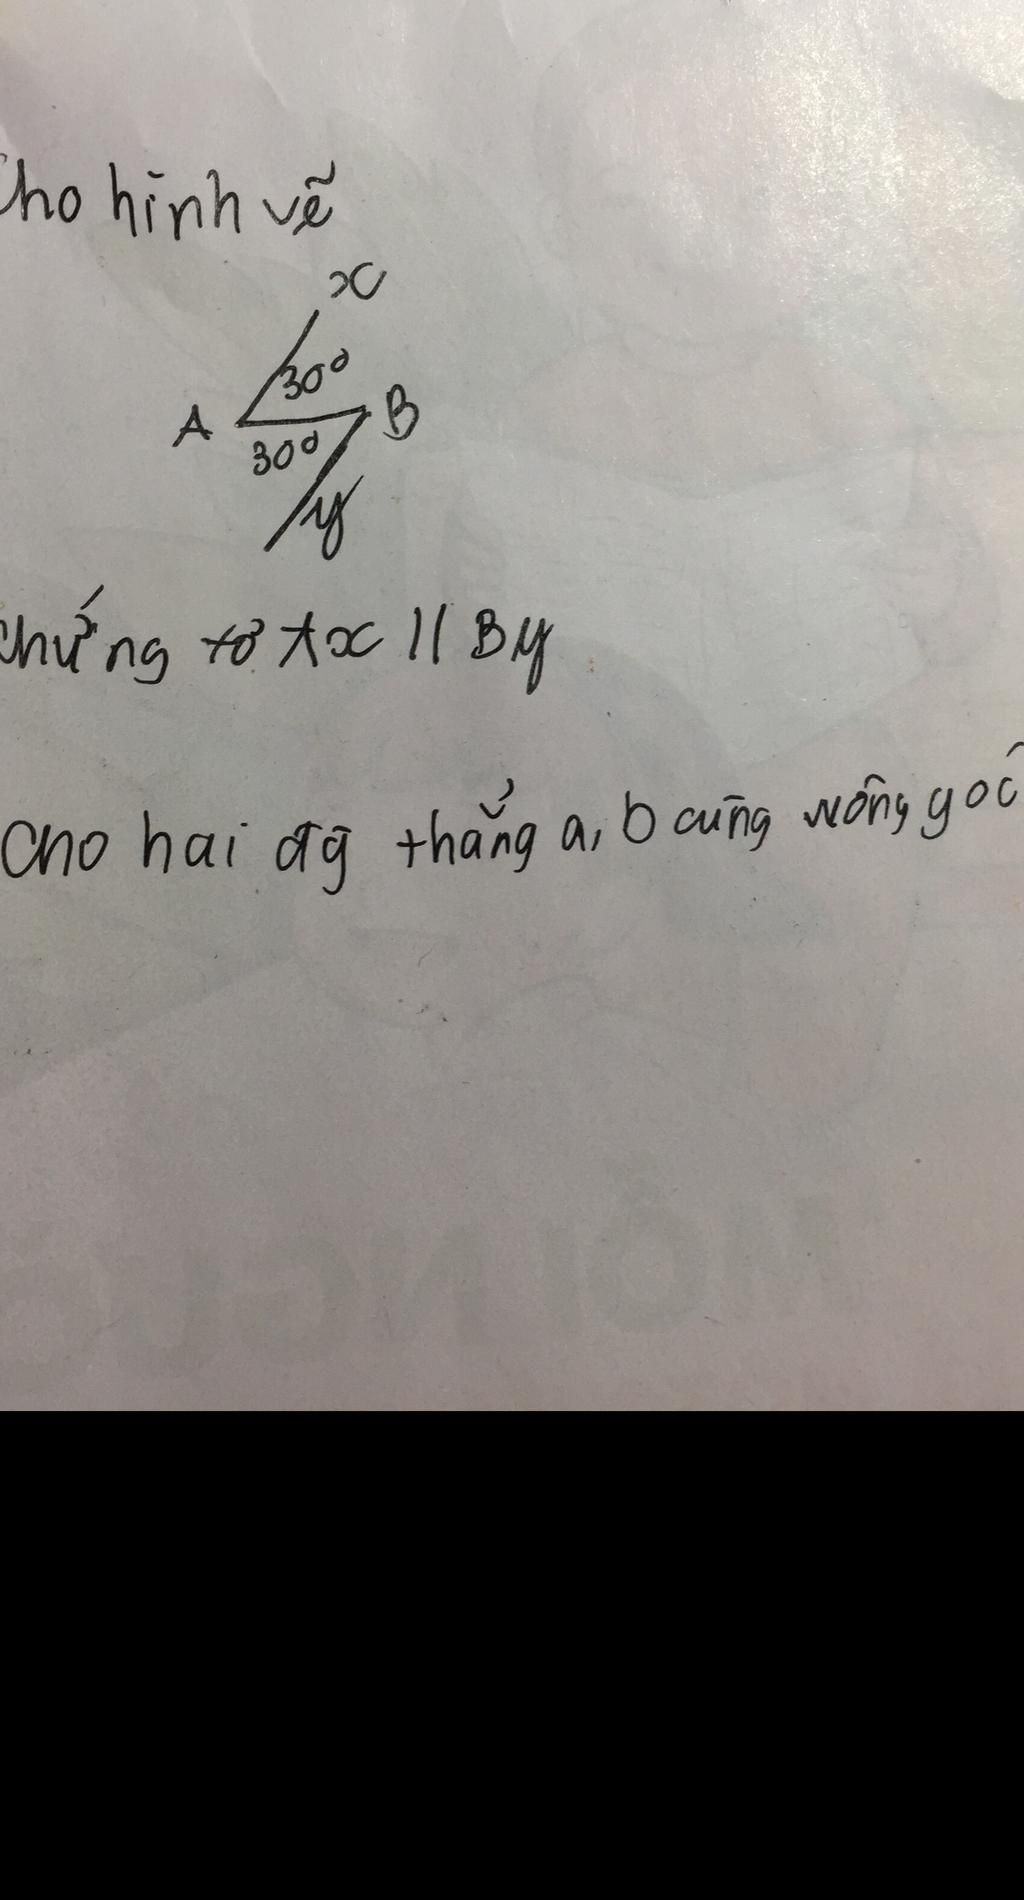 Cho hình vẽ
x
30°
A
B
30°
y
Chứng tỏ Ax // By
Cho hai đg thẳng a, b cùng vuông góc